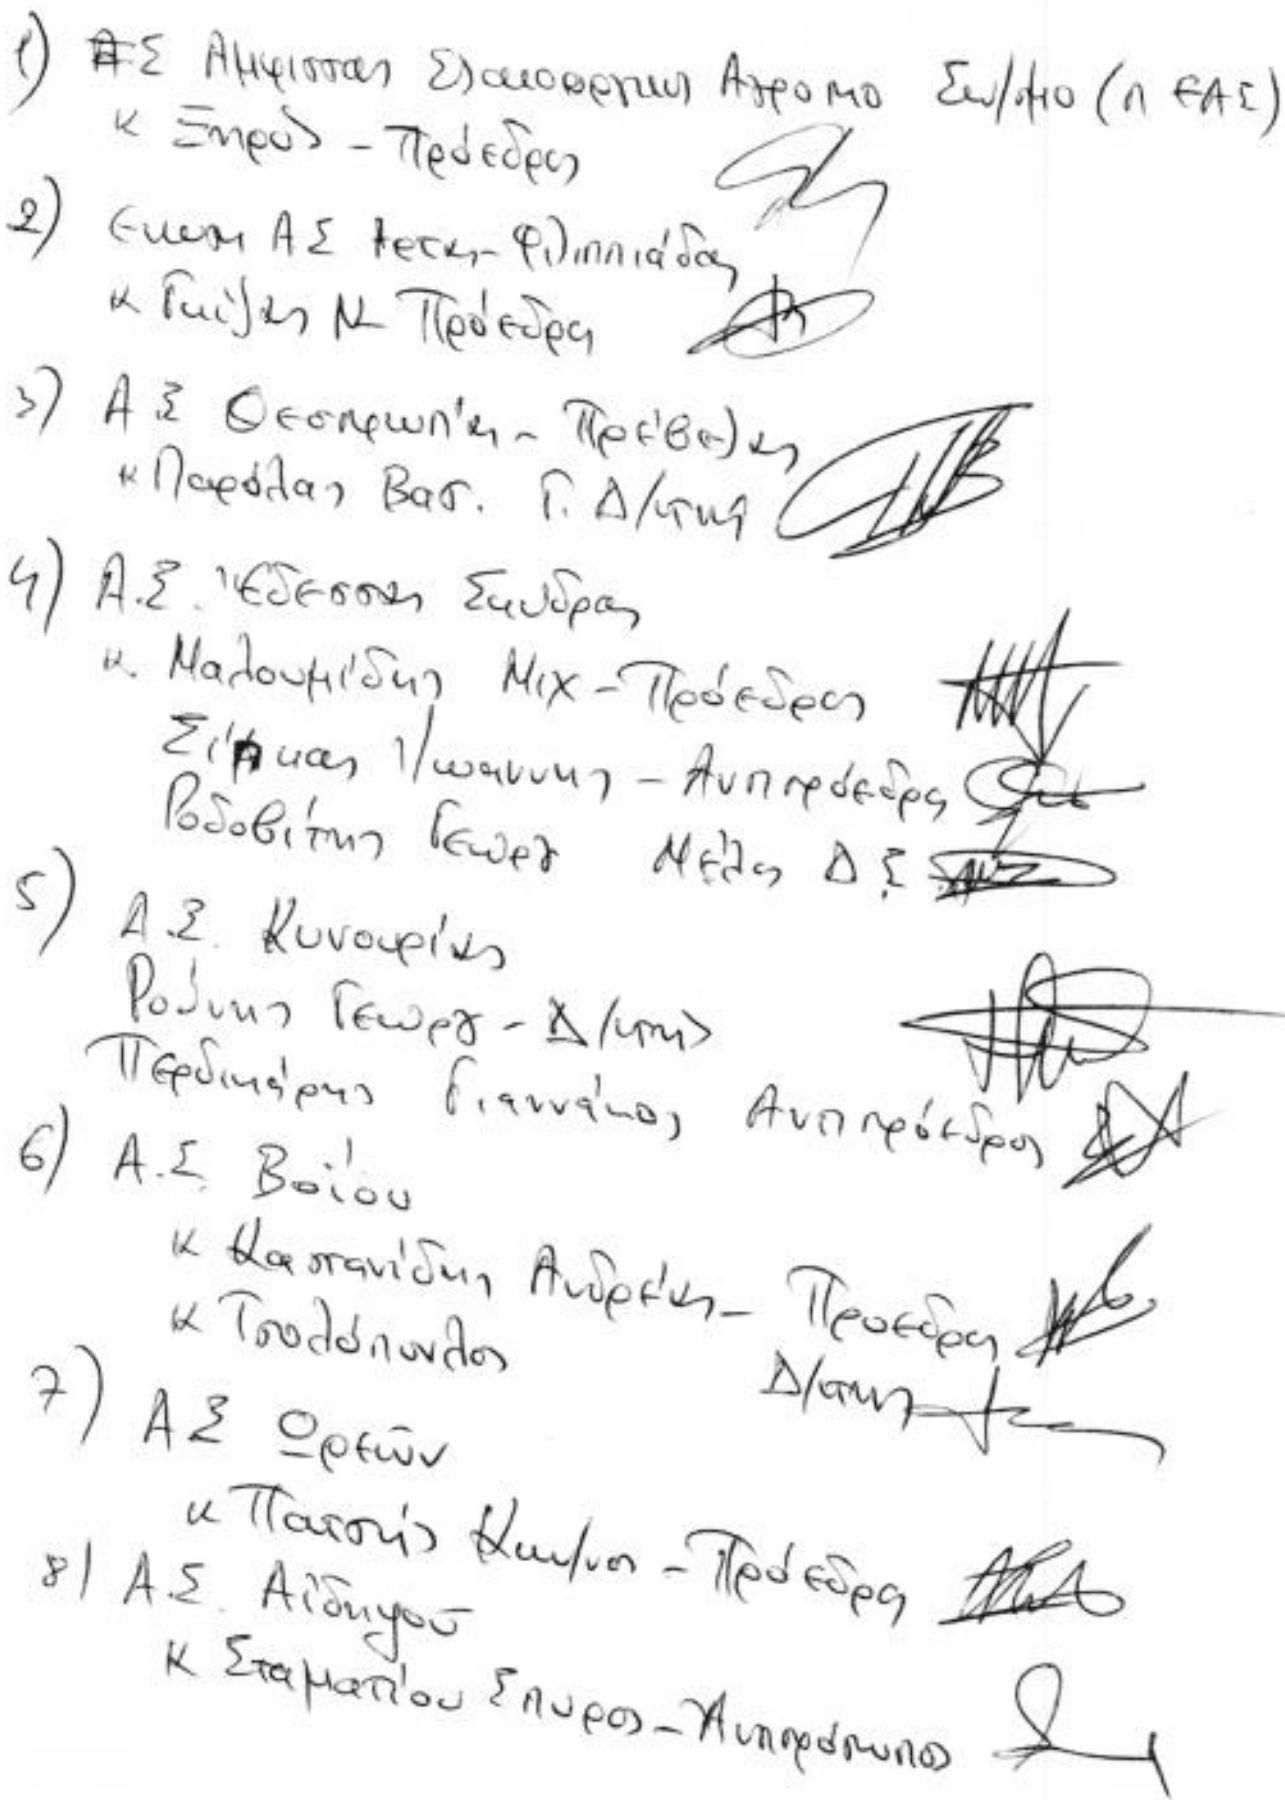 1) ΑΣ Αμφισσας Ελαιουργικος Αγροτικο Συν/σμο (π ΕΑΣ)
κ Ξηρός - Πρόεδρος
2) Ενωση ΑΣ Άρτας - Φιλιππιάδας
κ Γκίζας Ν Πρόεδρος
3) Α Σ Θεσπρωτίας - Πρέβεζας
κ Παρόλας Βασ. Γ. Δ/ντης
4) Α.Σ. Έδεσσας Σκύδρας
κ. Μαλουμίδης Μιχ - Πρόεδρος
Σίμκας Ιωαννης - Αντιπρόεδρος
Ροδοβίτης Γεωργ Μέλος Δ Σ
5) Α.Σ. Κυνουρίας
Ρούνης Γεωργ - Δ/ντης
Περδικάρης Γιαννάκος Αντιπρόεδρος
6) Α.Σ. Βοΐου
κ Καστανίδης Ανδρέας - Προεδρος
κ Τσολόπουλος Δ/ντης
7) Α Σ Ωρεών
κ Πατσής Κων/νος - Πρόεδρος
8) Α.Σ. Αιδηψού
κ Σταματίου Σπυρος - Αντιπρόσωπος